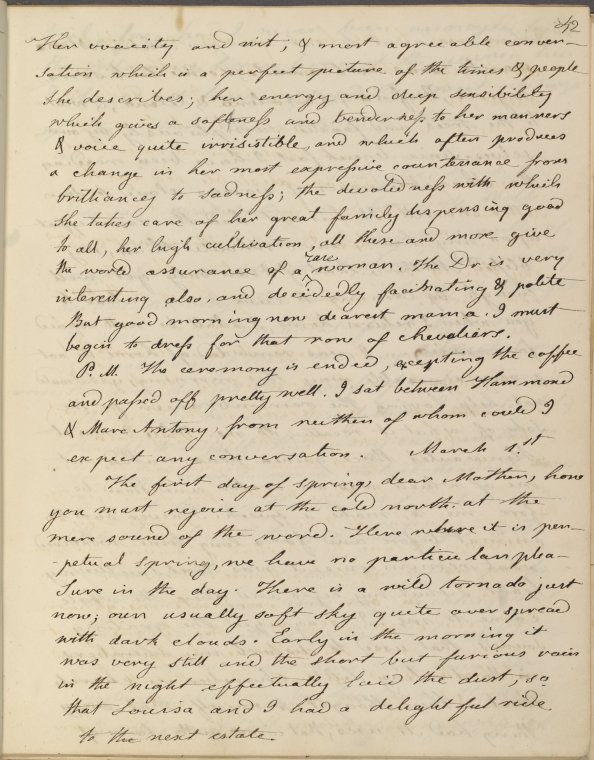 242
Her vivacity and wit, & most agreeable conver-
sation which is a perfect picture of the times & people
she describes; her energy and deep sensibility
which gives a softeness and tenderness to her manners
& voice quite irrisistible, and which often produces
a change in her most expressive countenance from
brilliancy to sadness; the devotedness with which
she takes care of her great family dispensing good
to all, her high cultivation, all these and more give
the world assurance of a rare woman. The Dr. is very
interesting also, and decidedly facinating & polite
But good morning now dearest mama. I must
begin to dress for that row of chevaliers.
P.M. The ceremony is ended, excepting the coffee
and passed off pretty well. I sat between Hammond
& Marc Antony, from neither of whom could I
expect any conversation. March 1st
The first day of spring, dear Mother, how
you must rejoice at the cold north, at the
mere sound of the word. Here where it is per-
-petual spring, we have no particular plea-
sure in the day. There is a wild tornado just
now; our usually soft sky quite overspread
with dark clouds. Early in the morning it
was very still and the short but furious rain
in the night effectually laid the dust, so
that Louisa and I had a delightful ride
to the next estate.